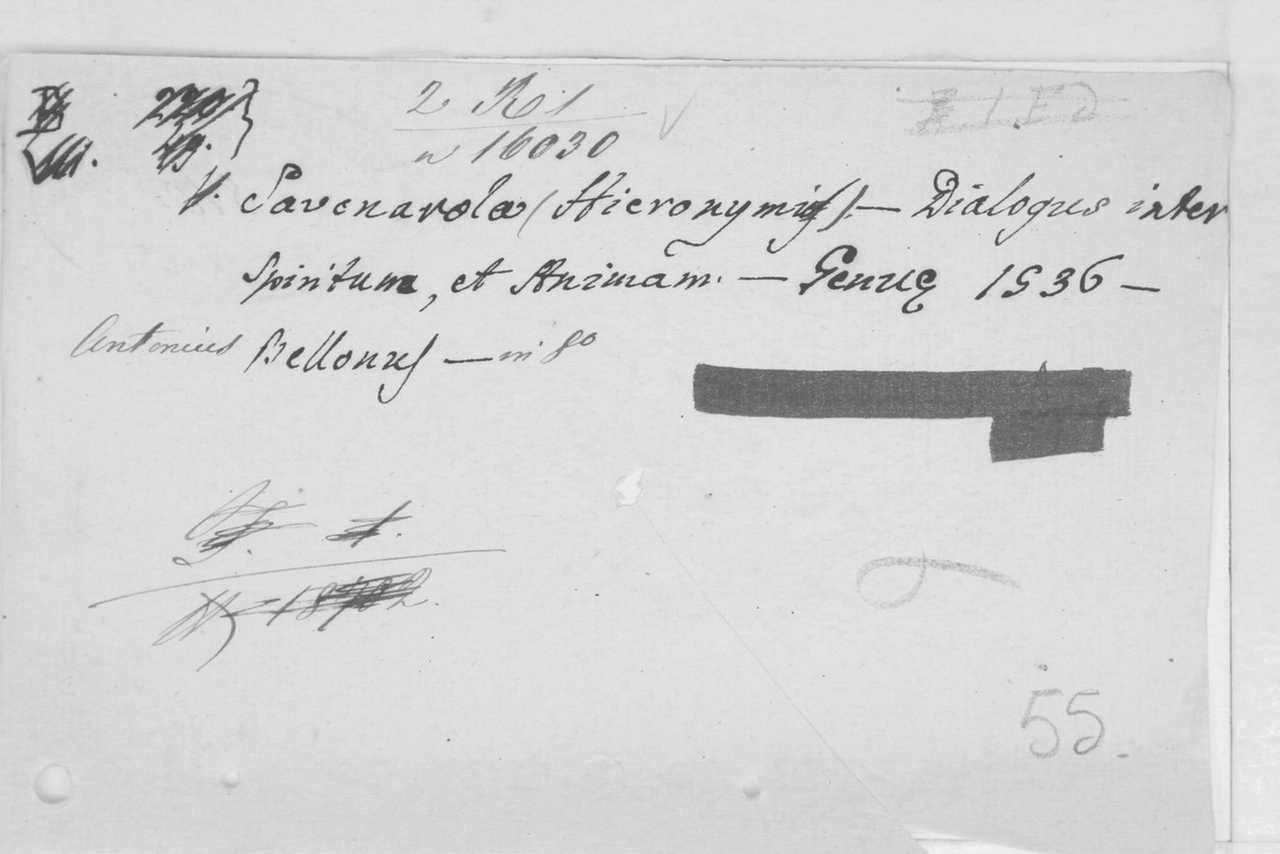 2 R 1
n 16030
Savenarola (Hieronymus). — Dialogus inter
Spiritum, et Animam. — Genuę 1536 —
Antonius Bellonus — in 8o
55.